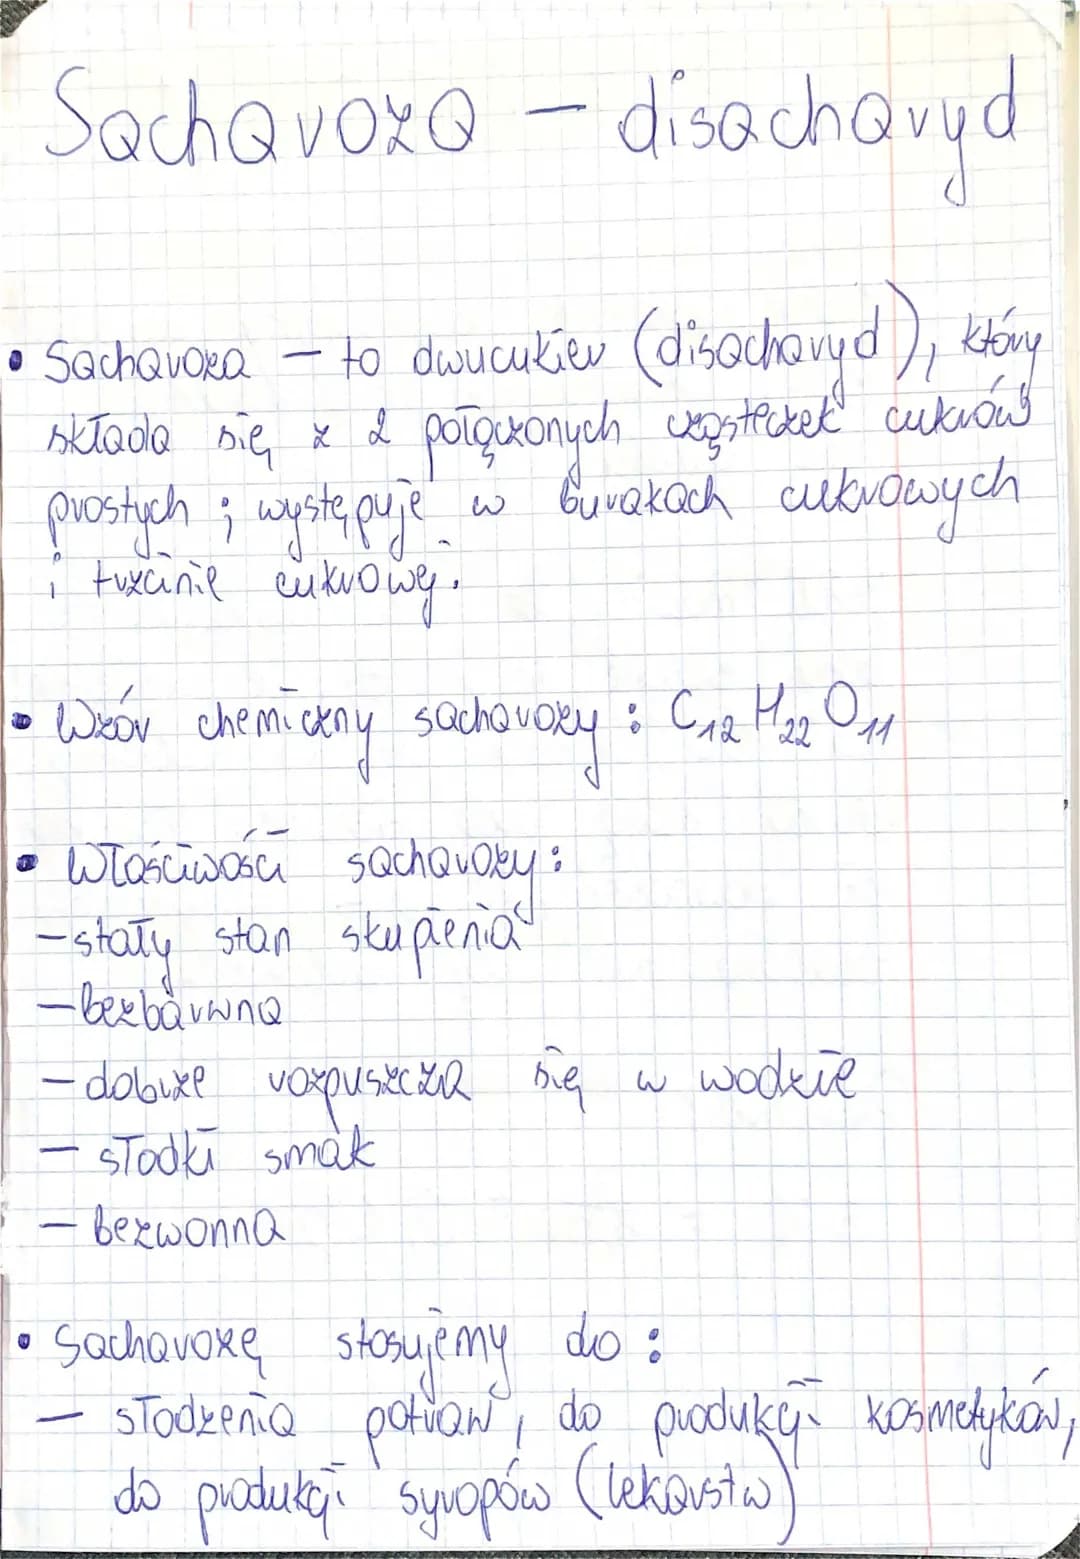 Sacharoza – disacharyd
• Sacharoza – to dwucukier (disacharyd), który
składa się z 2 połączonych cząsteczek cukrów
prostych ; występuje w burakach cukrowych
i trzcinie cukrowej.
• Wzór chemiczny sacharozy : C₁₂H₂₂O₁₁
• Właściwości sacharozy :
– stały stan skupienia
– bezbarwna
– dobrze rozpuszcza się w wodzie
– słodki smak
– bezwonna
• Sacharozę stosujemy do :
– słodzenia potraw, do produkcji kosmetyków,
do produkcji syropów (lekarstw)